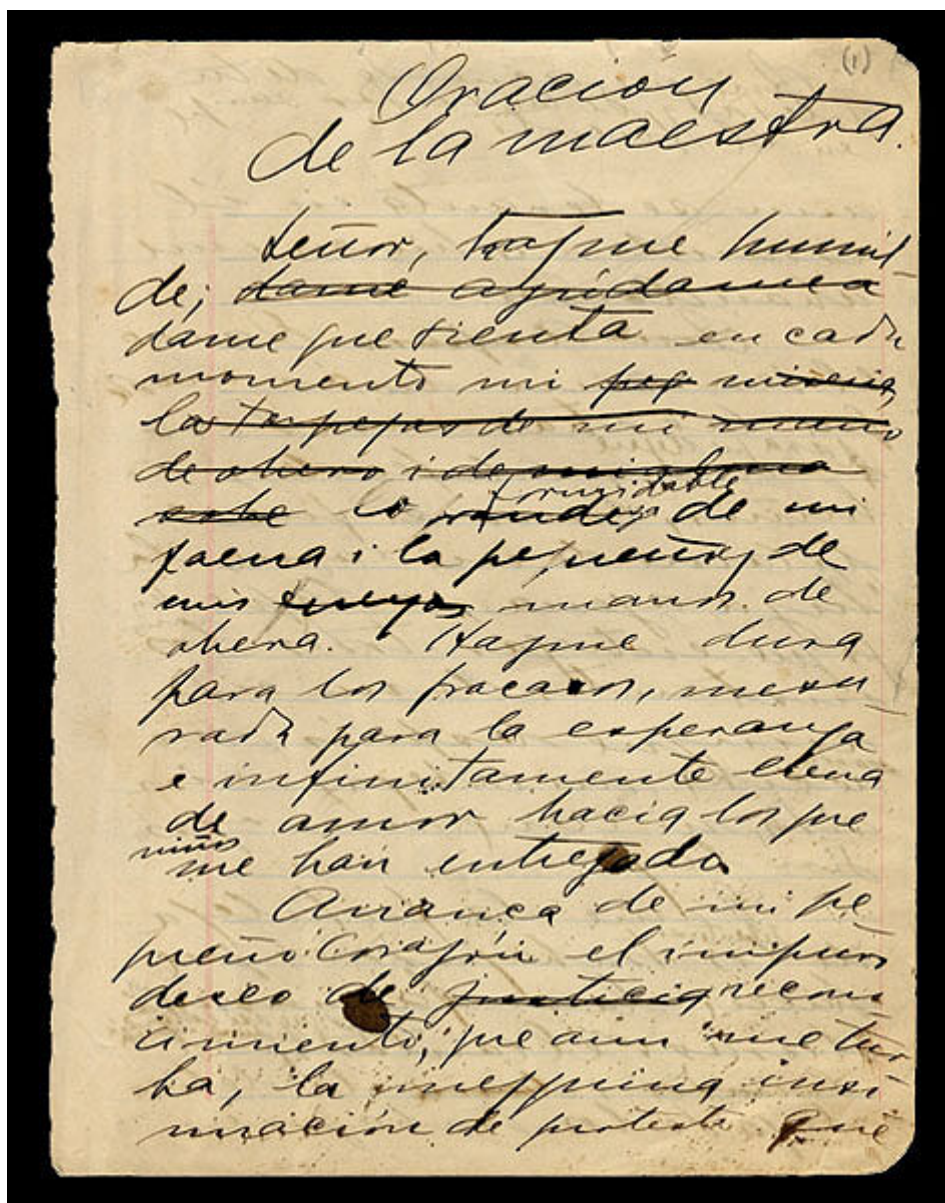 (1)
Oración
de la maestra.
Señor, hazme humil
de; dame ayúdame a
dame que sienta en cada
momento mi peq miseria,
las torpezas de mi mano
de obero i de mi alma
formidable
de mi
faena i la pequeñez de
mis manos de
obera. Hazme dura
para los fracasos, mesu
rada para la esperanza
e infinitamente llena
de amor hacia los que
niños
me han entregado.
Arranca de mi pe
queño corazón el impuro
deseo de justicia recono
cimiento, que aun me tur
ba, la mezquina insi
nuación de protesta. Que